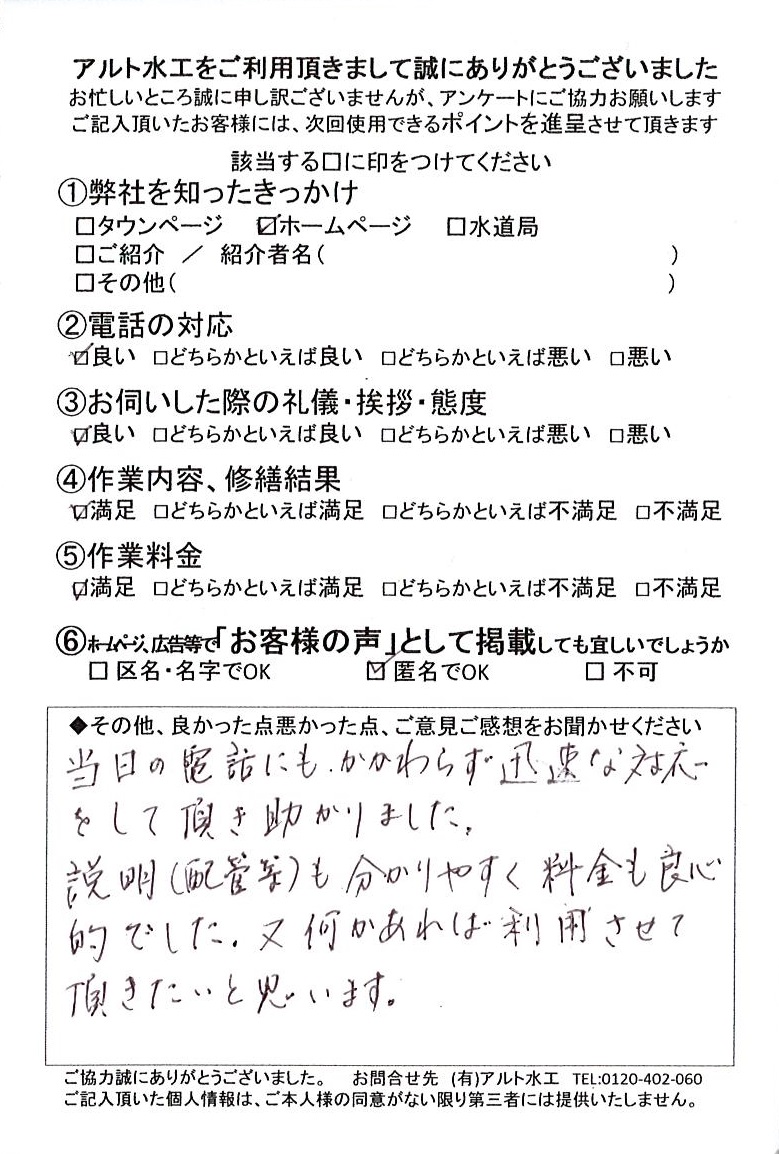 アルト水工をご利用頂きまして誠にありがとうございました
お忙しいところ誠に申し訳ございませんが、アンケートにご協力お願いします
ご記入頂いたお客様には、次回使用できるポイントを進呈させて頂きます
該当する□に印をつけてください
①弊社を知ったきっかけ
□タウンページ ☑ホームページ □水道局
□ご紹介 ／ 紹介者名( )
□その他( )
②電話の対応
☑良い □どちらかといえば良い □どちらかといえば悪い □悪い
③お伺いした際の礼儀・挨拶・態度
☑良い □どちらかといえば良い □どちらかといえば悪い □悪い
④作業内容、修繕結果
☑満足 □どちらかといえば満足 □どちらかといえば不満足 □不満足
⑤作業料金
☑満足 □どちらかといえば満足 □どちらかといえば不満足 □不満足
⑥ホームページ、広告等で「お客様の声」として掲載しても宜しいでしょうか
□ 区名・名字でOK ☑ 匿名でOK □ 不可
◆その他、良かった点悪かった点、ご意見ご感想をお聞かせください
当日の電話にも、かかわらず迅速な対応
をして頂き助かりました。
説明(配管等)も分かりやすく料金も良心
的でした。又何かあれば利用させて
頂きたいと思います。
ご協力誠にありがとうございました。 お問合せ先 (有)アルト水工 TEL:0120-402-060
ご記入頂いた個人情報は、ご本人様の同意がない限り第三者には提供いたしません。